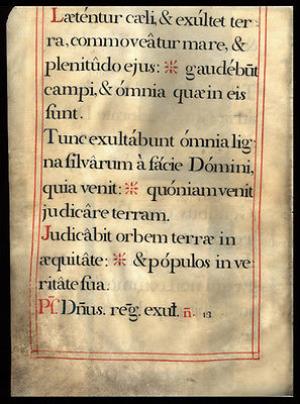 Læténtur cæli, & exúltet ter-
ra, commoveâtur mare, &
plenitûdo ejus: ⁜ gaudébūt
campi, & ómnia quæ in eis
ſunt.
Tunc exultábunt ómnia lig-
na ſilvârum à fácie Dómini,
quia venit: ⁜ quóniam venit
judicâre terram.
Judicâbit orbem terræ in
æquitâte: ⁜ & pópulos in ve-
ritâte ſua.
Pſ. Dñus. reg̃. exuł. ñ. 18